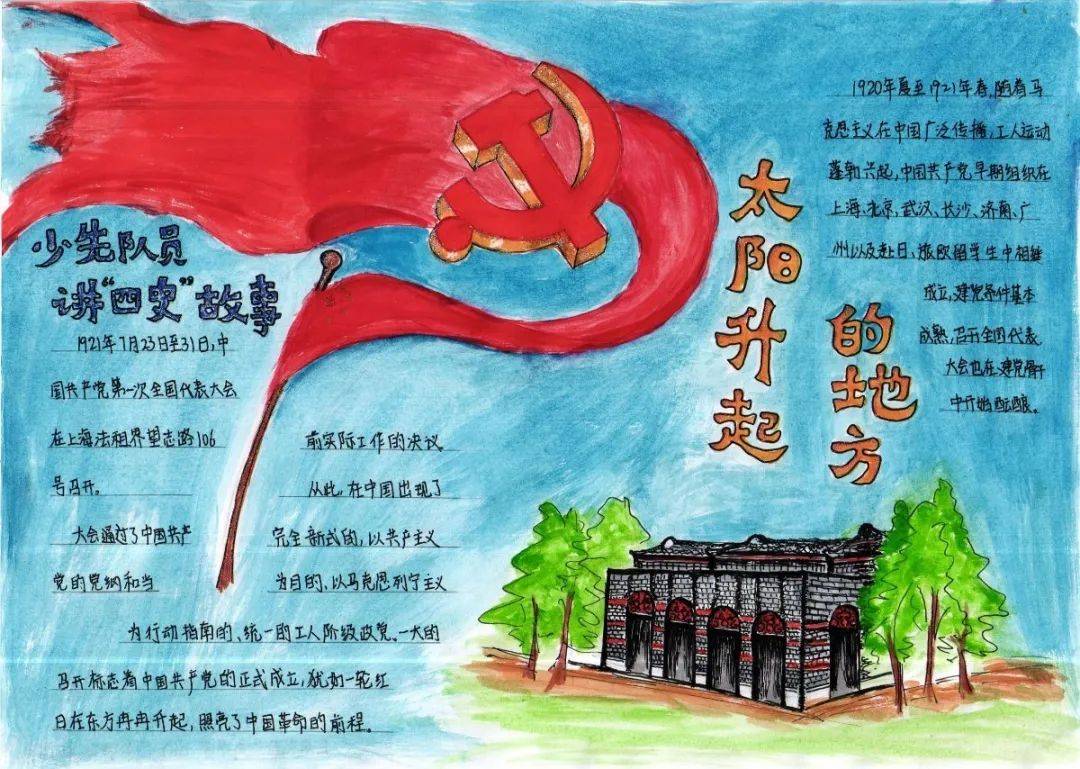 少先队员
讲“四史”故事
1921年7月23日至31日,中
国共产党第一次全国代表大会
在上海法租界望志路106
号召开。
大会通过了中国共产
党的党纲和当
前实际工作的决议
从此,在中国出现了
完全新式的,以共产主义
为目的、以马克思列宁主义
为行动指南的、统一的工人阶级政党。一大的
召开标志着中国共产党的正式成立,犹如一轮红
日在东方冉冉升起,照亮了中国革命的前程。
太阳升起
的地方
1920年夏至1921年春,随着马
克思主义在中国广泛传播,工人运动
蓬勃兴起,中国共产党早期组织在
上海、北京、武汉、长沙、济南、广
州以及赴日、旅欧留学生中相继
成立,建党条件基本
成熟,召开全国代表
大会也在建党骨干
中开始酝酿。